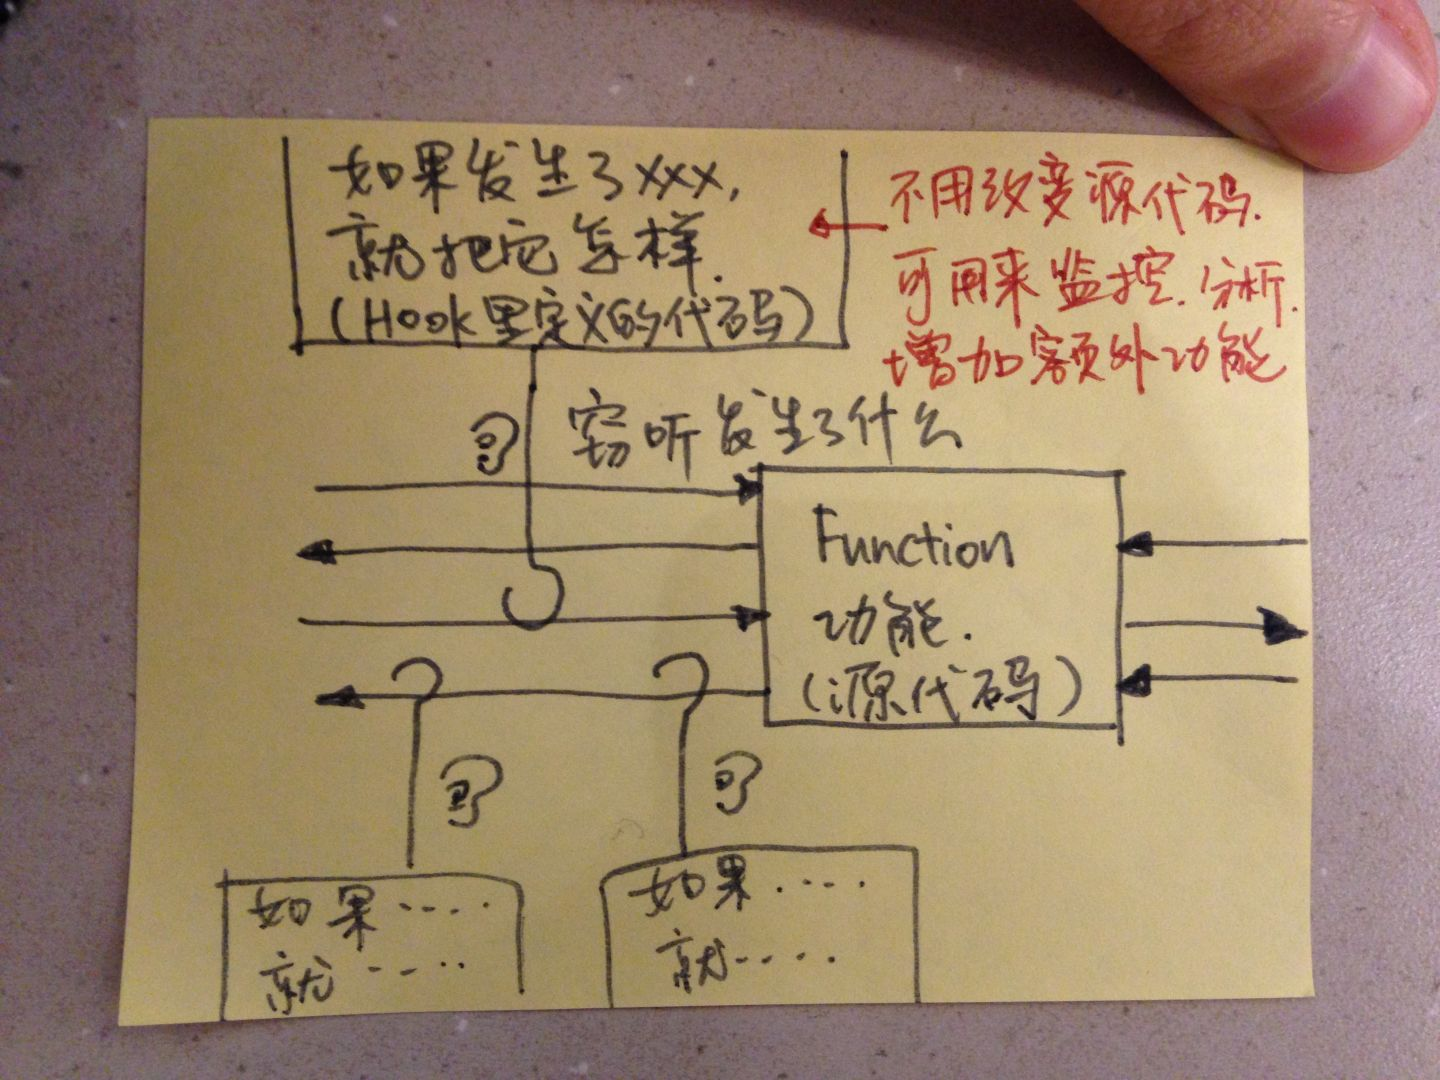 如果发生了xxx,
就把它怎样.
(Hook里定义的代码)
不用改变源代码.
可用来监控.分析.
增加额外功能
窃听发生了什么
Function
功能.
(源代码)
如果....
就....
如果....
就....